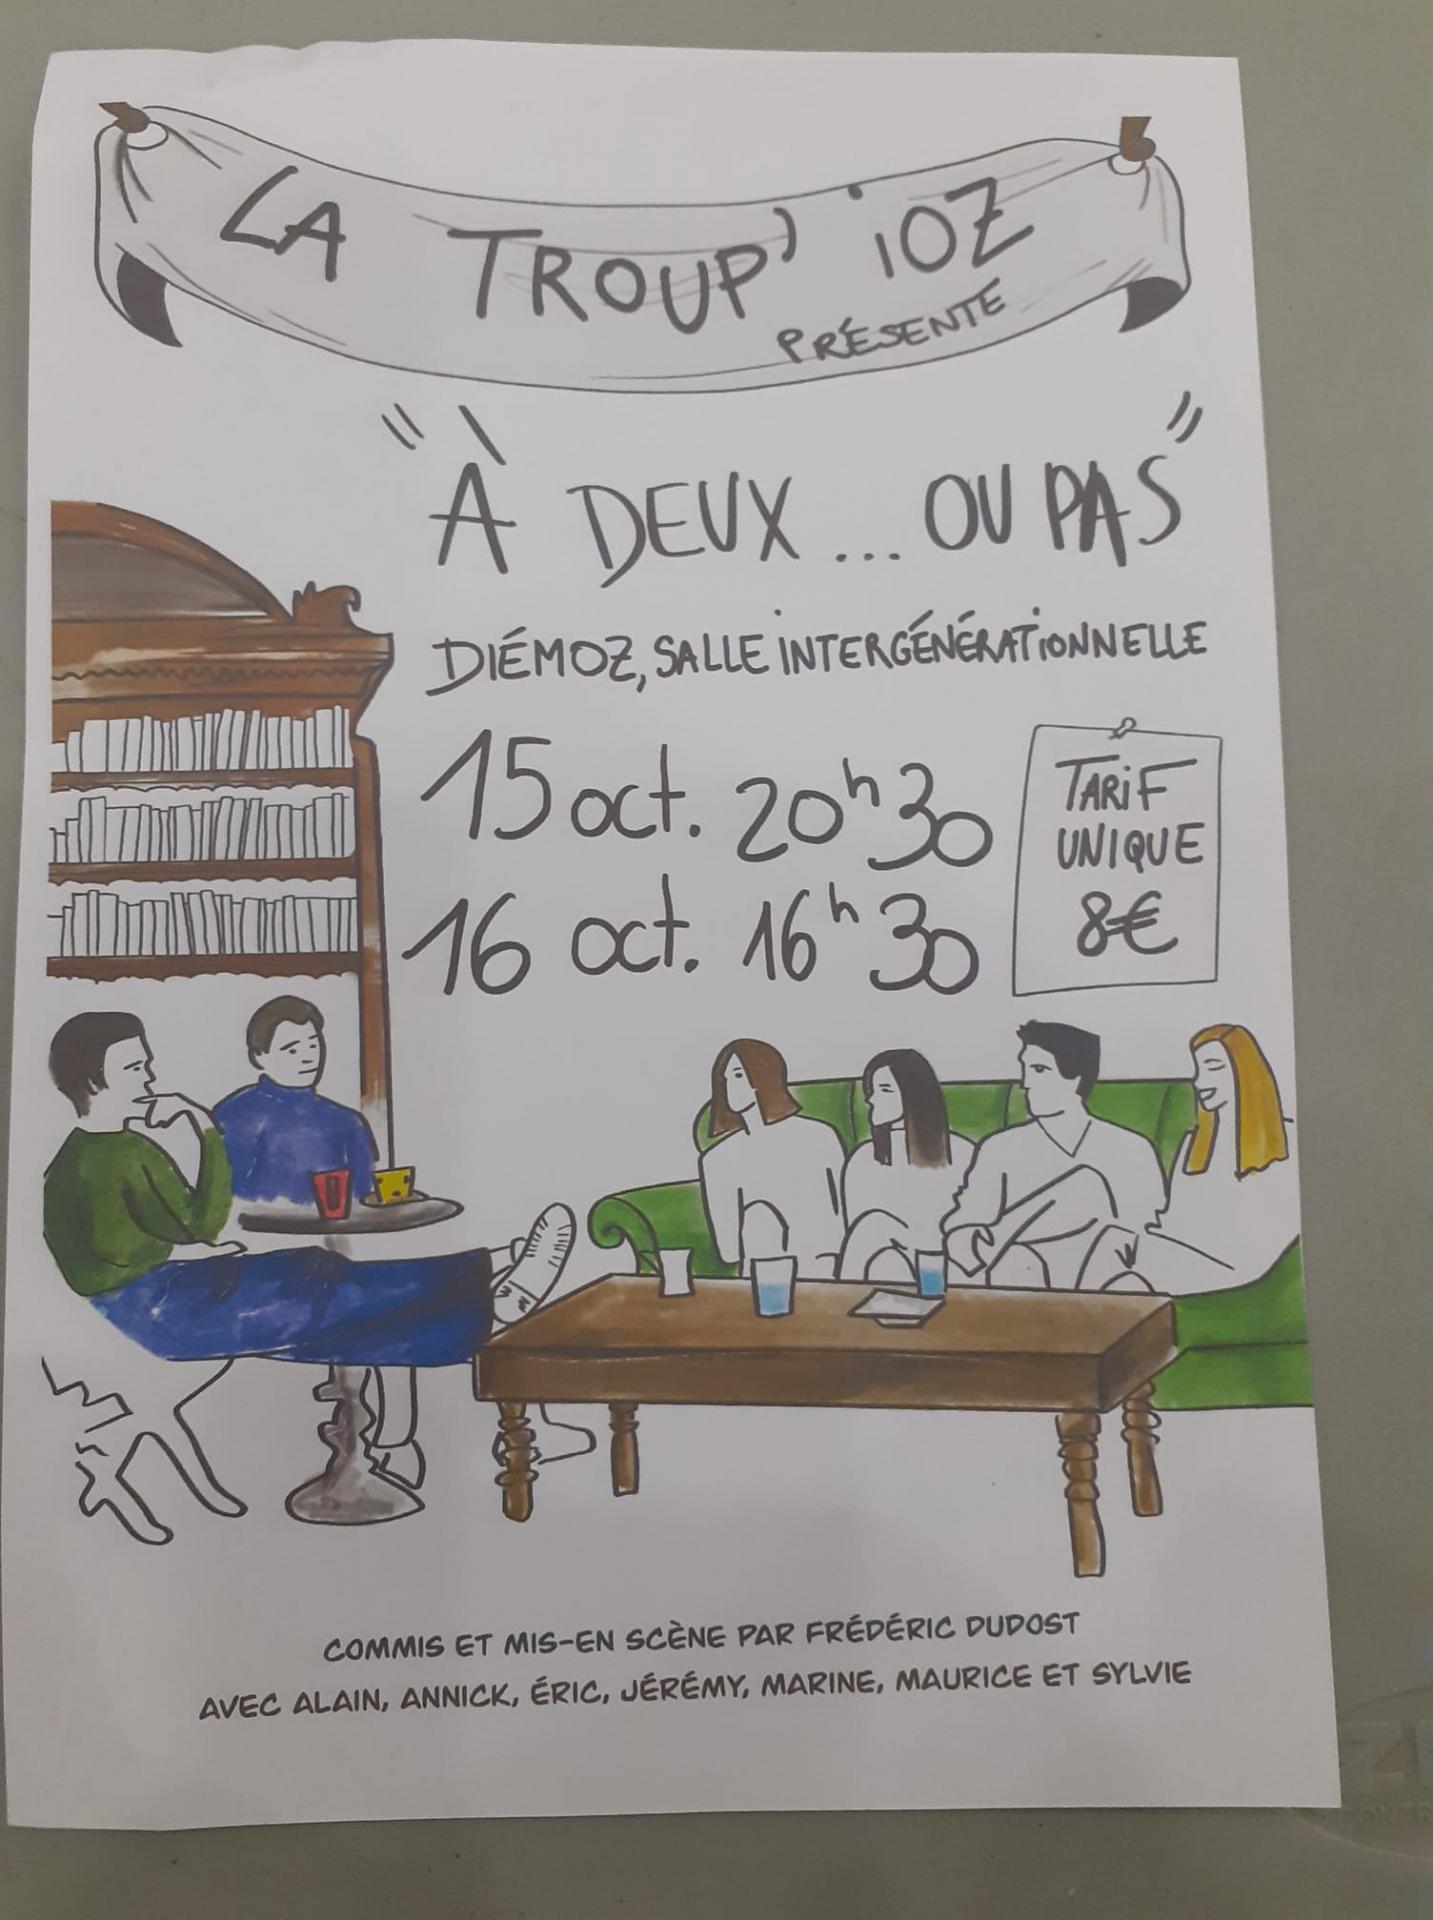 LA TROUP' iOZ
PRÉSENTE
"À DEUX... OU PAS"
DIÉMOZ, SALLE INTERGÉNÉRATIONNELLE
15 oct. 20h30
16 oct. 16h30
TARIF
UNIQUE
8€
COMMIS ET MIS-EN SCÈNE PAR FRÉDÉRIC DUDOST
AVEC ALAIN, ANNICK, ÉRIC, JÉRÉMY, MARINE, MAURICE ET SYLVIE